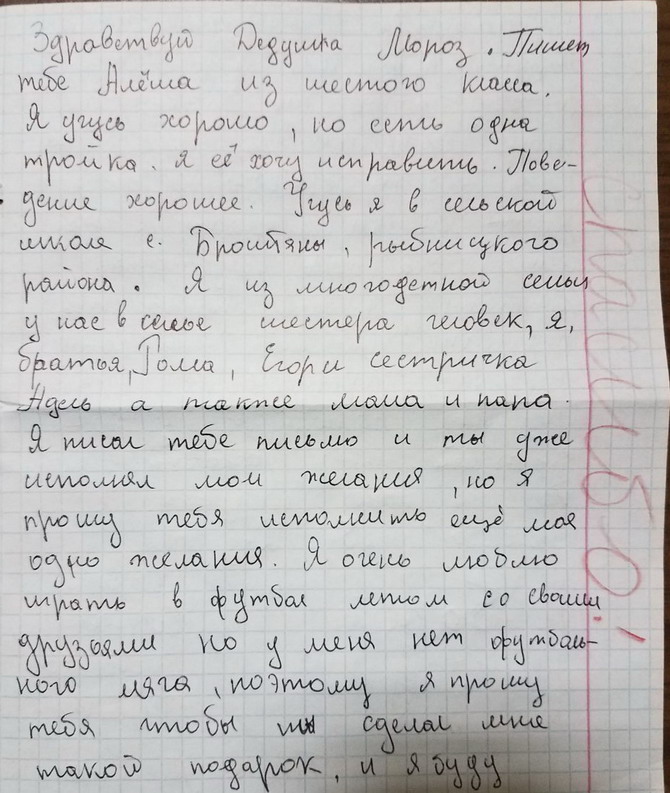 Здравствуй Дедушка Мороз. Пишет
тебе Алёша из шестого класса.
Я учусь хорошо, но есть одна
тройка. Я её хочу исправить. Пове-
дение хорошее. Учусь я в сельской
школе с. Броштяны, рыбницкого
района. Я из многодетной семьи
у нас в семье шестера человек, я,
братья, Рома, Егор и сестричка
Адель а также мама и папа.
Я писал тебе письмо и ты уже
исполнял мои желания, но я
прошу тебя исполнить ещё моя
одно желания. Я очень люблю
играть в футбол летом со своими
друзьями но у меня нет футболь-
ного мяча, поэтому я прошу
тебя чтобы ты сделал мне
такой подарок, и я буду
спасибо!